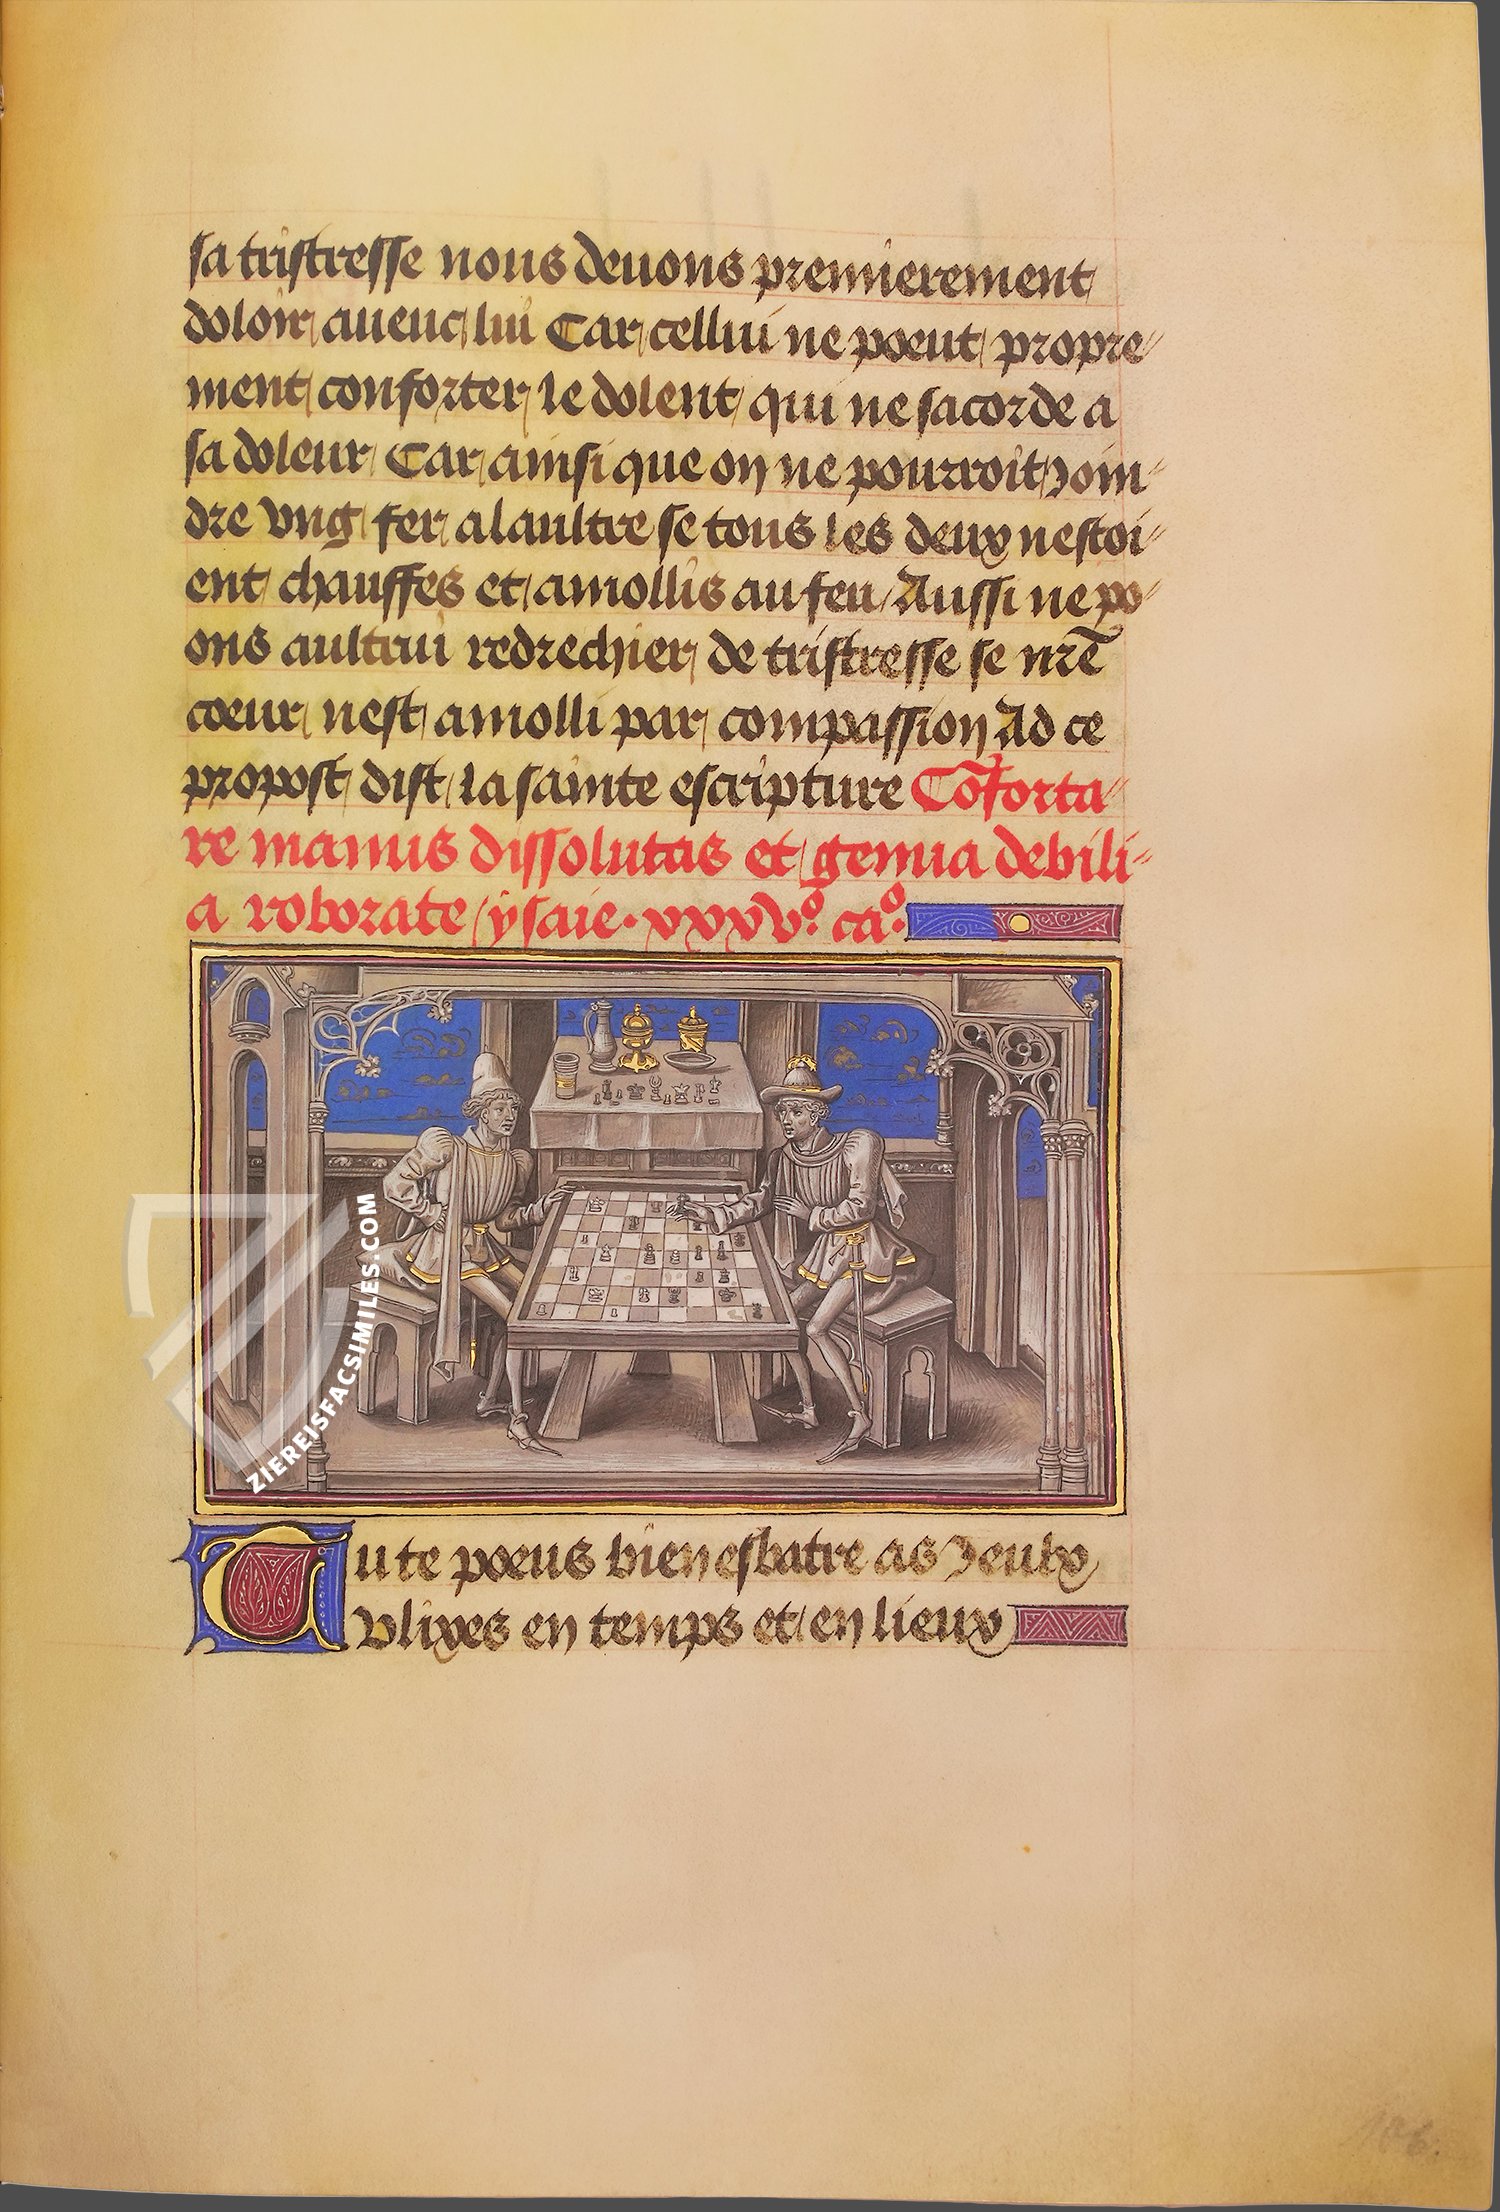 sa tristresse nous deuons premierement
doloir auenc lui Car cellui ne poeut propre-
ment conforter le dolent qui ne sacorde a
sa doleur Car ainsi que on ne pourroit join-
dre vng fer a laultre se tous les deux nestoi-
ent chauffes et amollis au feu Aussi ne po-
ons aultrui redrechier de tristresse se nr̄e
coeur nest amolli par compassion Ad ce
propost dist la sainte escripture Cōforta-
re manus dissolutas et genua debili-
a roborate ysaie. xxxvº. caº.
ZIEREISFACSIMILES.COM
Tu te poeus bien esbatre as jeulx
Vlixes en temps et en lieux